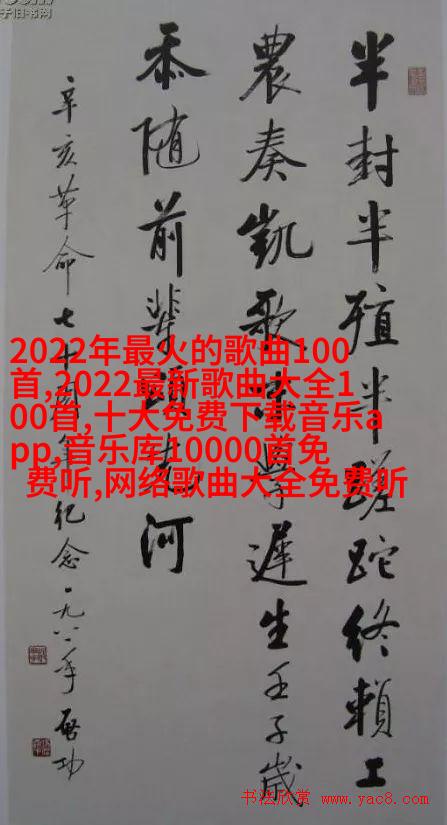 子旧书网
半封半殖半蹉跎终賴工
農奏凱歌學遲生壬子歲
忝随前輩頌河
辛亥革命七十周年紀念一九八一年啓功
2022年最火的歌曲100
首,2022最新歌曲大全1
00首,十大免费下载音乐a
pp,音乐库10000首免
费听,网络歌曲大全免费听
书法欣赏 www.yac8.com